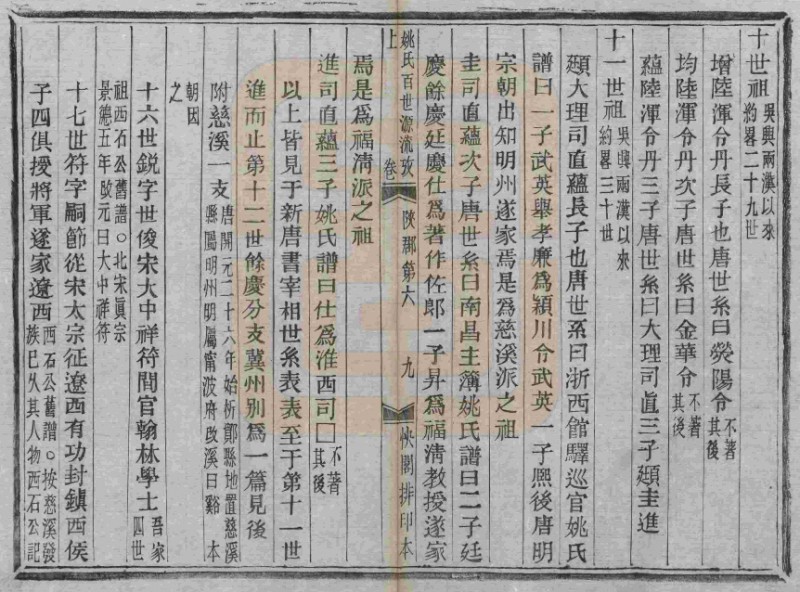 十世祖 吳興兩漢以來約畧二十九世
增陸渾令丹長子也唐世系曰滎陽令 不著其後
均陸渾令丹次子唐世系曰金華令 不著其後
蘊陸渾令丹三子唐世系曰大理司直三子顋圭進
十一世祖 吳興兩漢以來約畧三十世
顋大理司直蘊長子也唐世系曰浙西館驛巡官姚氏
譜曰一子武英舉孝廉為潁川令武英一子熙後唐明
宗朝出知明州遂家焉是為慈溪派之祖
圭司直蘊次子唐世系曰南昌主簿姚氏譜曰二子廷
慶餘慶廷慶仕為著作佐郎一子昇為福清教授遂家
姚氏百世源流攷 卷上 陝郡第六 九 快閣排印本
焉是為福清派之祖
進司直蘊三子姚氏譜曰仕為淮西司□ 不著其後
以上皆見于新唐書宰相世系表表至于第十一世
進而止第十二世餘慶分支冀州別為一篇見後
附慈溪一支 唐開元二十六年始析鄮縣地置慈溪縣屬明州明屬甯波府改溪曰谿 本朝因之
十六世銳字世俊宋大中祥符間官翰林學士 吾家四世祖西石公舊譜○北宋眞宗景德五年改元曰大中祥符
十七世符字嗣節從宋太宗征遼西有功封鎮西侯
子四俱授將軍遂家遼西 西石公舊譜○按慈溪發族已久其人物西石公記